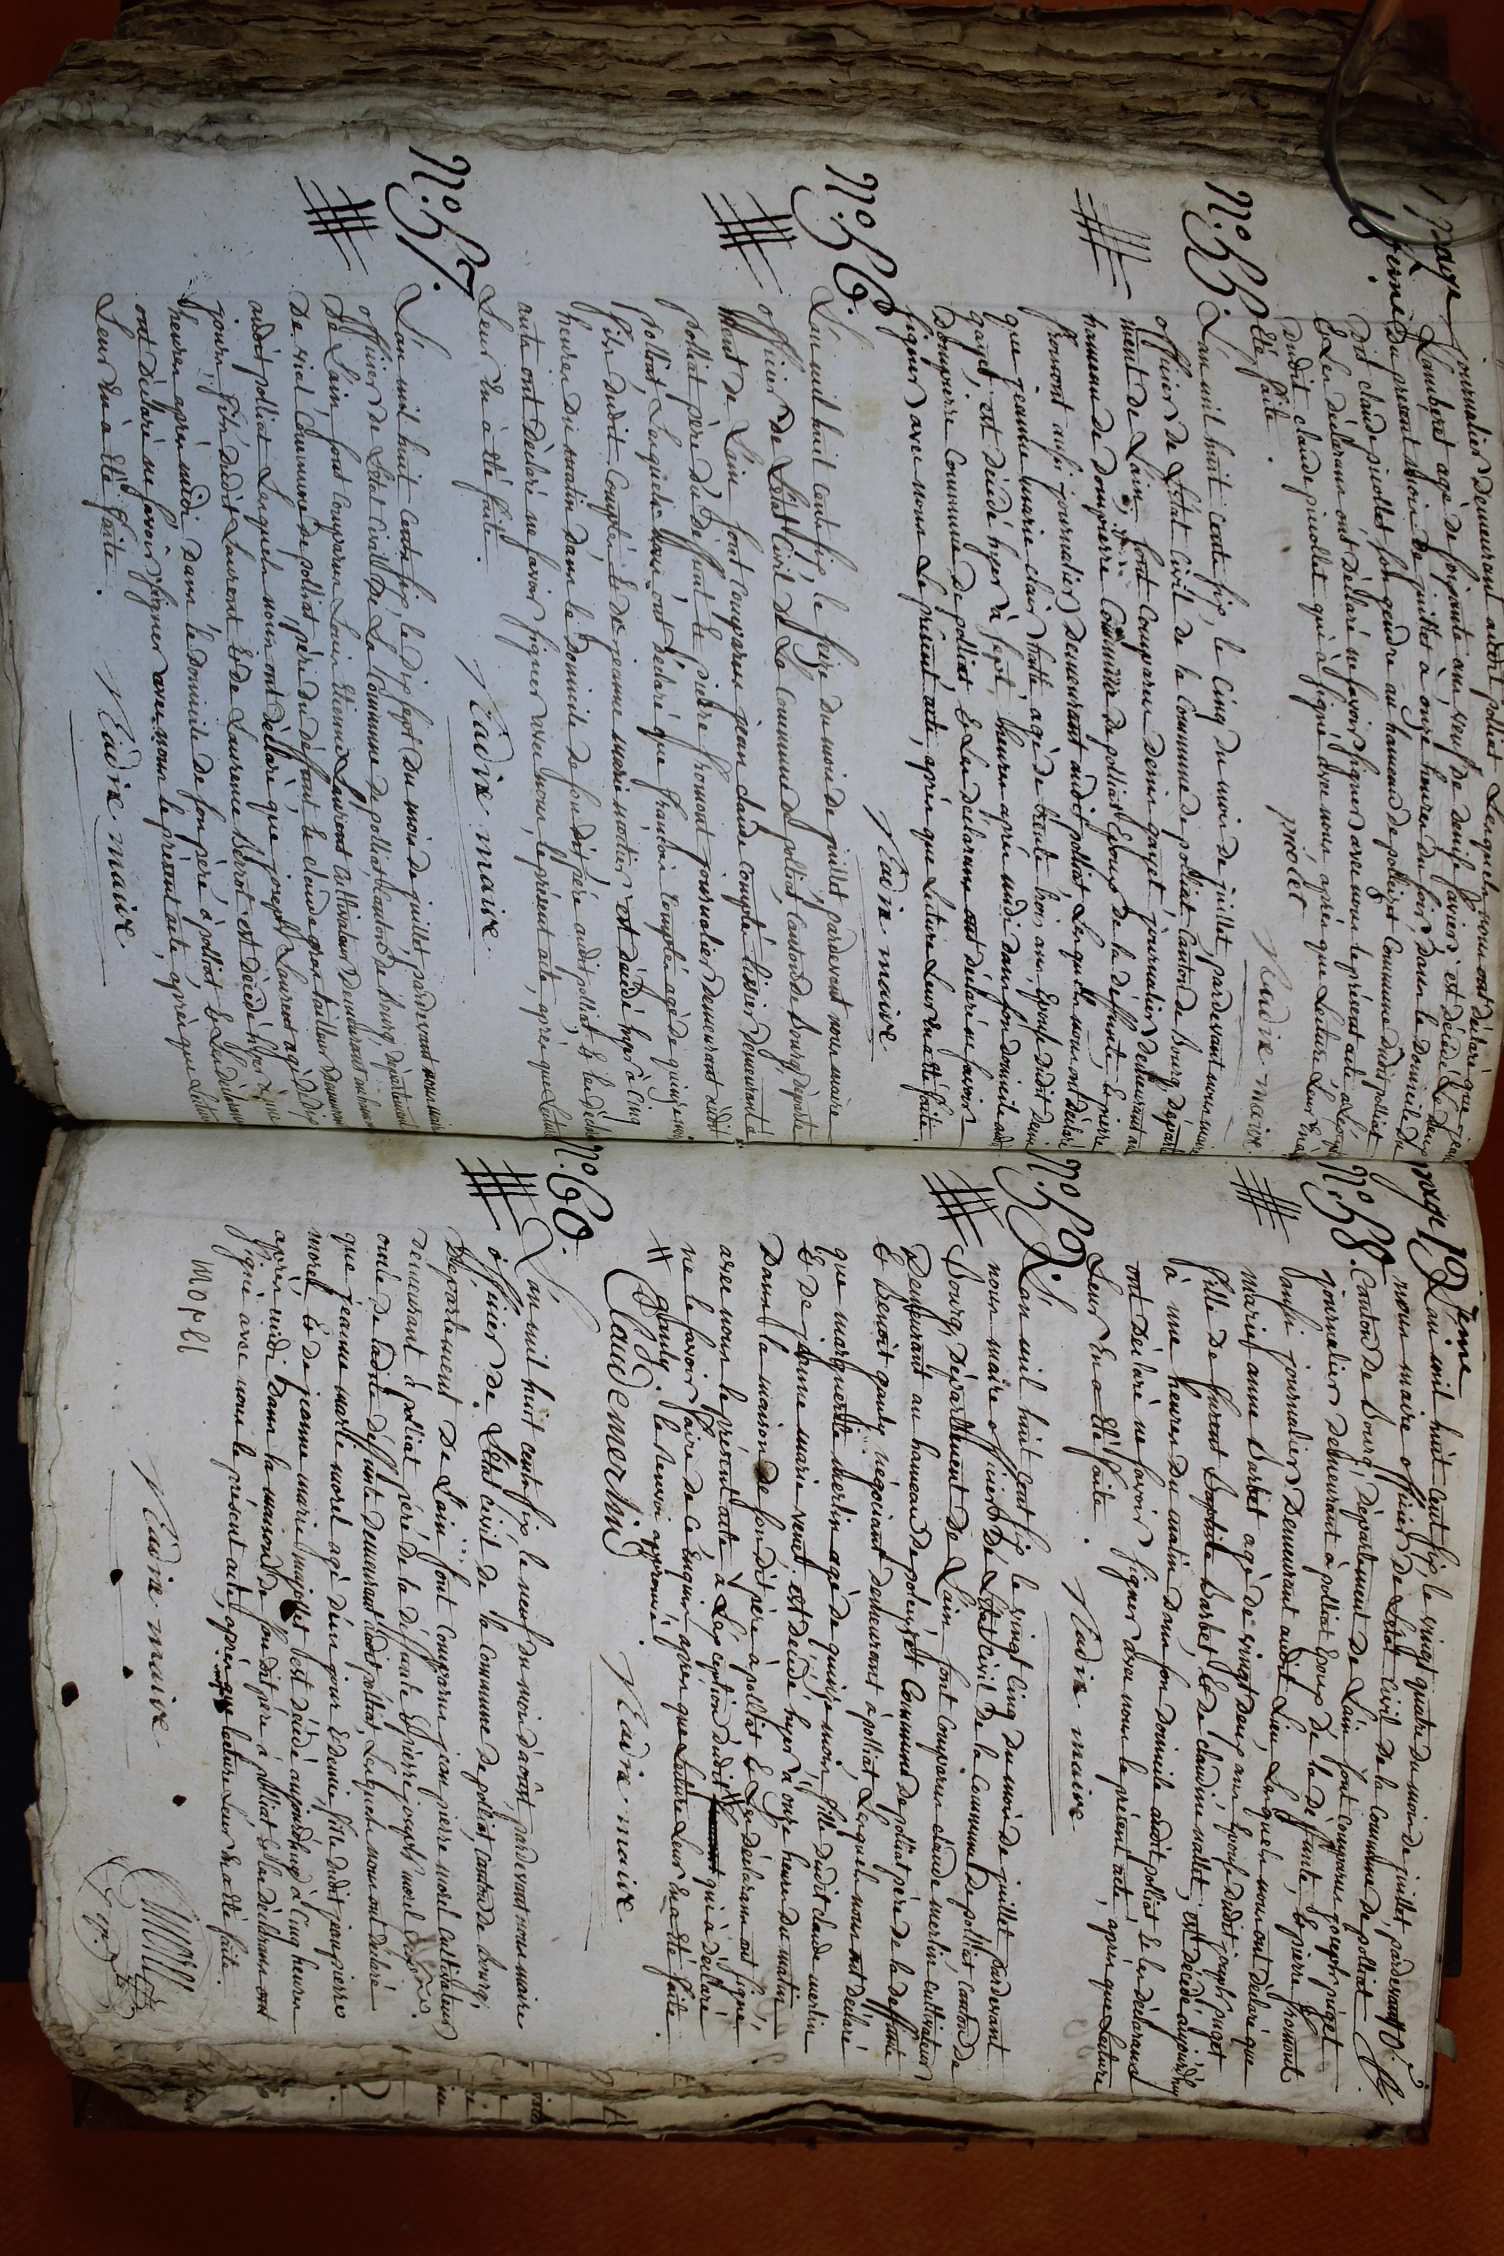 page
18 eme
journalier Demeurant audit polliat Lesquels nous ont déclaré que jean
Lamberet agé de soixante ans veuf de denise favier est décédé Le deux
Du present mois de juillet à onze heures du soir, dans le domicile du
dit claude piollet son gendre au hameau de polleizet Commune dudit polliat
& Les déclarans ont déclaré ne savoir signer avec nous le présent acte, a
dudit claude piollet qui à signé avec nous après que Lecture Leur En a
Eté faite.
piolet
Nadie maire
N.º 55.
L'an mil huit cents six, le cinq du mois de juillet, pardevant nous maire
officier de L'état Civil de la Commune de polliat Canton de Bourg, départ
ment de Lain, sont Comparus denis gayet journalier demeurant au
hameau de dompierre Commune de polliat Epoux de la défunte, & pierre
fromont aussi journalier demeurant audit polliat Lesquels nous ont déclaré
que jeanne marie clair matte agé de trente trois ans Epouse dudit denis
gayet, est décédé hyer à sept heures après midi dans son domicile audit
Dompierre Commune de polliat, & Les déclarans ont déclaré ne savoir
signer avec nous Le présent acte, après que Lecture Leur En a Eté faite.
Nadie maire
N.º 56.
L'an mil huit cents six, le seize du mois de juillet, pardevant nous maire
officier de L'état Civil de La Commune de polliat, Canton de Bourg, départe
ment de Lain sont Comparus jean claude Comptet tissier demeurant à
polliat père du deffunt & pierre fromont journalier demeurant audit
polliat Lesquels nous ont déclaré que françois Comptet agé de quinze mois
fils dudit Comptet & de jeanne marie est décédé hyer à cinq
heures du matin dans le domicile de son dit père audit polliat & les décla
rants ont déclaré ne savoir signer avec nous, le présent acte, après que Lecture
Leur En a Eté faite.
Nadie maire
N.º 57.
L'an mil huit cents six, le dix sept du mois de juillet, pardevant nous maire
officier de L'état Civil De La Commune de polliat Canton de Bourg, département
De Lain sont Comparus Louis Etienne Laurent Cultivateur demeurant au hameau
De viat, Commune de polliat père du deffunt & claude gras tailleur demeurant
audit polliat Lesquels nous ont déclaré que joseph Laurent agé de dix
jours fils dudit Laurent & de Laurence Berrot est décédé hyer à
heures après midi dans le domicile de son père, à polliat & Les déclarans
ont déclaré ne savoir signer avec nous le présent acte, après que Lecture
Leur En a Eté faite.
Nadie maire
page 19 eme
N.º 58.
L'an mil huit cents six, le vingt quatre du mois de juillet pardevant
nous maire officier de L'état Civil de la Commune de polliat
Canton de Bourg, département de Lain, sont Comparus joseph puget
journalier demeurant à polliat Epoux de la défunte, & pierre fromont
aussi journalier demeurant audit Lieu Lesquels nous ont déclaré que
marie anne Barbet agé de vingt deux ans Epouse dudit joseph puget
fille de Baptiste Barbet, & de claudine nallet, est décédé aujourd'huy
à une heures du matin dans son domicile audit polliat & les déclarans
ont déclaré ne savoir signer avec nous le présent acte, après que Lecture
Leur En a Eté faite.
Nadie maire
N.º 59.
L'an mil huit cent six le vingt cinq du mois de juillet pardevant
nous maire officier de L'état Civil de la Commune de polliat Canton de
Bourg, département de Lain sont Comparus claude merlin cultivateur
demeurant au hameau de poleizet Commune de polliat père de la deffunte
& Benoit gauly négociant demeurant à polliat, Lesquels nous ont déclaré
que marguerite merlin agé de quinze mois, fille dudit claude merlin
& de jeanne marie venet est décédé hyer à onze heures du matin
Dans la maison de son dit père à polliat & Les déclarans ont signé
avec nous le présent acte à L'éxception dudit qui à déclaré
ne le savoir faire de ce Enquis, après que Lecture Leur En a Eté faite.
gauly. le renvoi approuvé.
Claude merlin
Nadie maire
N.º 60.
L'an mil huit cents six, le neuf du mois d'août, pardevant nous maire
officier de L'état civil de la Commune de polliat, Canton de Bourg,
Département De Lain sont Comparus jean pierre morel cultivateur
demeurant à polliat père de la deffunte & pierre joseph morel
oncle de ladite deffunte demeurant audit polliat, Lesquels nous ont déclaré
que jeanne morel agé d'un jour & demie, fille dudit jean pierre
morel & de jeanne marie est décédé aujourd'huy à cinq heures
après midi dans la maison de son dit père à polliat & Les déclarans ont
signé avec nous le présent acte, après que lecture Leur En a Eté faite.
morel
Morel
Nadie maire